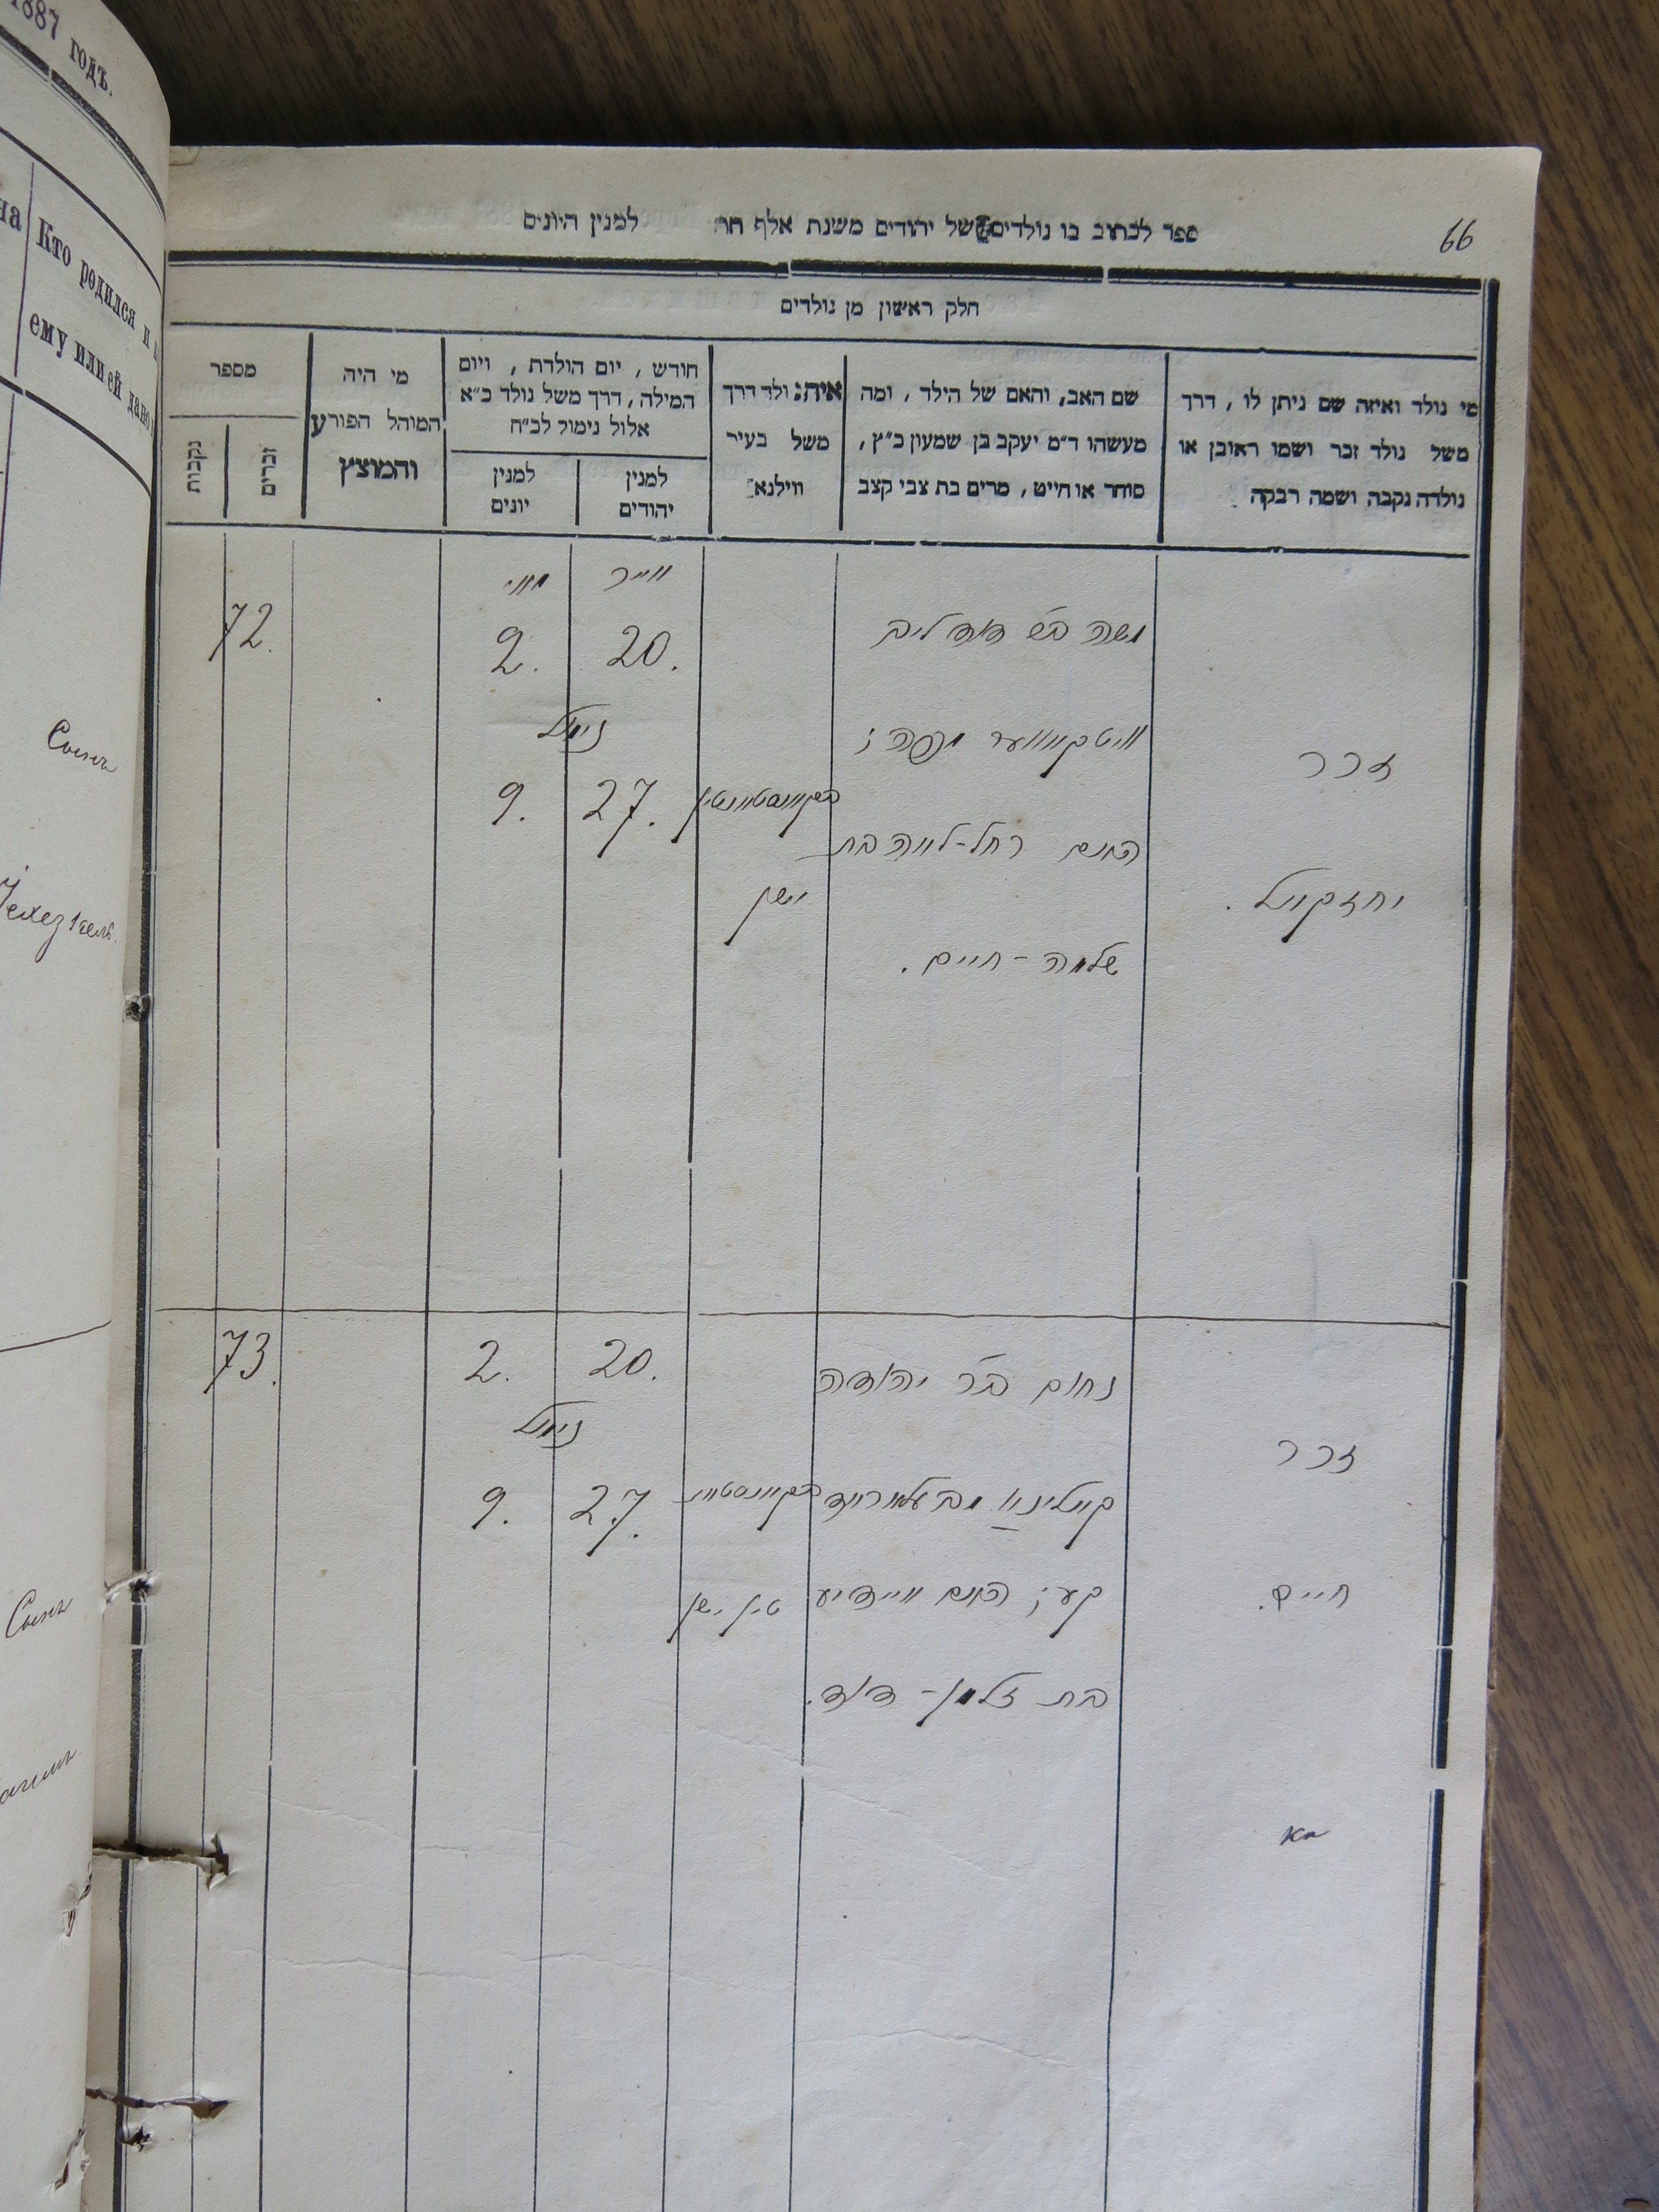 1887 годъ.
на
Кто родился и
ему или ей дано
Сынъ
Іехезкель.
Сынъ
66
ספר לכתוב בו נולדים של יהודים משנת אלף תת למנין היונים
חלק ראשון מן נולדים
מי נולד ואיזה שם ניתן לו, דרך
משל נולד זכר ושמו ראובן או
נולדה נקבה ושמה רבקה
שם האב, והאם של הילד, ומה
מעשהו ד״מ יעקב בן שמעון כ״ץ,
סוחר או חייט, מרים בת צבי קצב
איה: ולד דרך
משל בעיר
ווילנא
חודש, יום הולדת, ויום
המילה, דרך משל נולד כ״א
אלול נימול לכ״ח
למנין
יהודים
למנין
יונים
מי היה
המוהל הפורע
והמוצץ
מספר
זכרים
נקבות
זכר
יחזקיל.
משה ב״ר דוד ליב
מפה;
האם רחל-לאה בת
שלמה-חיים.
ישן
אייר
מאי
20.
2.
נימול
27.
9.
72.
זכר
חיים.
נחום ב״ר יהודה
קע; האם
בת זלמן-דוד.
טין ישן
20.
2.
נימול
27.
9.
73.